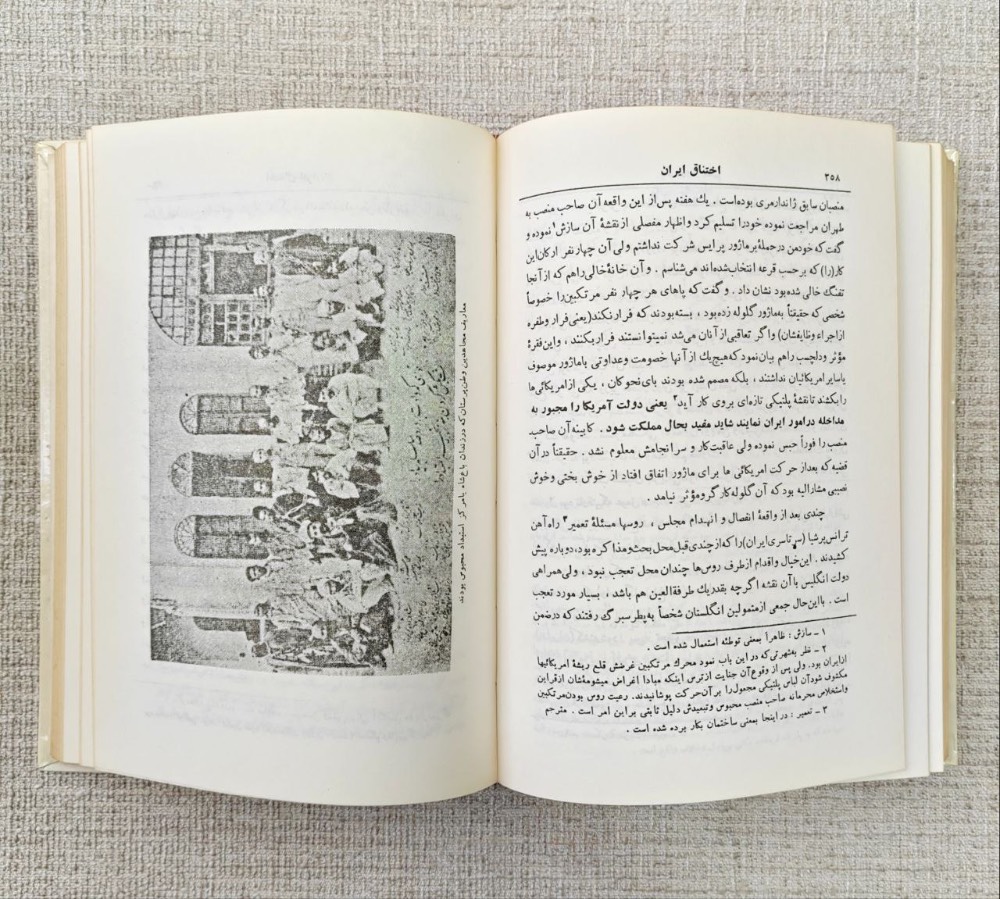 ۳۵۸
اختناق ایران
منصبان سابق ژاندارمری بوده‌است . یك هفته پس‌از این واقعه آن صاحب منصب به
طهران مراجعت نموده خودرا تسلیم کرد و اظهار مفصلی از نقشهٔ آن سازش۱ نموده و
گفت که خودمن درحمله بر ماژور پرایس شرکت نداشتم ولی آن چهارنفر ارکان این
کار(را) که برحسب قرعه انتخاب‌شده‌اند می‌شناسم . و آن خانهٔ خالی راهم که از آنجا
تفنگ خالی شده‌بود نشان داد . و گفت که پاهای هر چهار نفر مرتکبین‌را خصوصاً
شخصی که حقیقتاً به‌ماژور گلوله زده‌بود ، بسته‌بودند که فرار نکند(یعنی فرار و طفره
ازاجراء وظایفشان) و اگر تعاقبی از آنان می‌شد نمیتوانستند فرار بکنند ، و این فقرهٔ
مؤثر و دلچسب راهم بیان نمود که هیچ‌یك از آنها خصومت و عداوتی با ماژور موصوف
یا سایر امریکائیان نداشتند ، بلکه مصمم شده بودند بای‌نحو کان ، یکی از امریکائی‌ها
را بکشند تا نقشهٔ پلتیکی تازه‌ای بروی کار آید۲ یعنی دولت آمریکا را مجبور به
مداخله درامور ایران نمایند شاید مفید بحال مملکت شود . کابینه آن صاحب
منصب را فوراً حبس نموده ولی عاقبت کار و سرانجامش معلوم نشد . حقیقتاً در آن
قضیه که بعداز حرکت امریکائی ها برای ماژور اتفاق افتاد از خوش بختی و خوش
نصیبی مشارالیه بود که آن گلوله کارگر و مؤثر نیامد .
چندی بعد از واقعهٔ انفصال و انهدام مجلس ، روسها مسئلهٔ تعمیر۳ راه‌آهن
ترانس‌پرشیا (سرتاسری ایران)را که از چندی قبل محل بحث و مذاکره بود، دوباره پیش
کشیدند . این خیال و اقدام از طرف روس‌ها چندان محل تعجب نبود ، ولی همراهی
دولت انگلیس با آن نقشه اگر چه بقدر یك طرفةالعین هم باشد ، بسیار مورد تعجب
است . با این حال جمعی از متمولین انگلستان شخصاً به‌پطرسبرگ رفتند که درضمن
۱ ـ سازش : ظاهراً بمعنی توطئه استعمال شده است .
۲ ـ نظر به‌شهرتی که در این باب نمود محرك مرتکبین غرضش قلع ریشهٔ امریکائیها
ازایران بود. ولی پس از وقوع آن جنایت ازترس اینکه مبادا اغراض میشومه‌شان ازقراین
مکشوف شود آن لباس پلتیکی مجعول را بر آن حرکت پوشانیدند. رعیت روس بودن مرتکبین
واستخلاص محرمانه صاحب منصب محبوس و تبعیدش دلیل ثابتی بر این امر است . مترجم
۳ ـ تعمیر : در اینجا بمعنی ساختمان بکار برده شده است .
معاریف مجاهدین وطن‌پرستان که درزندان باغ‌شاه بامر کز استبداد محبوس بودند